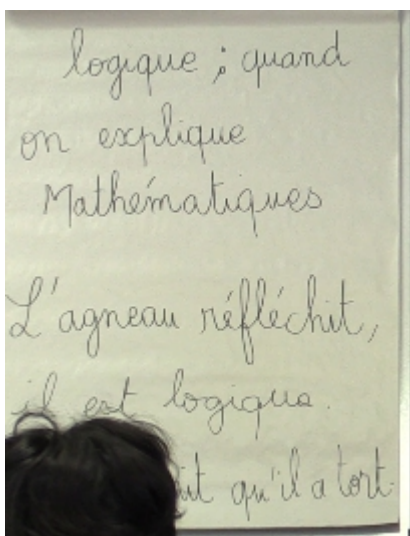 logique ; quand
on explique
Mathématiques
L'agneau réfléchit,
il est logique.
qu'il a tort.